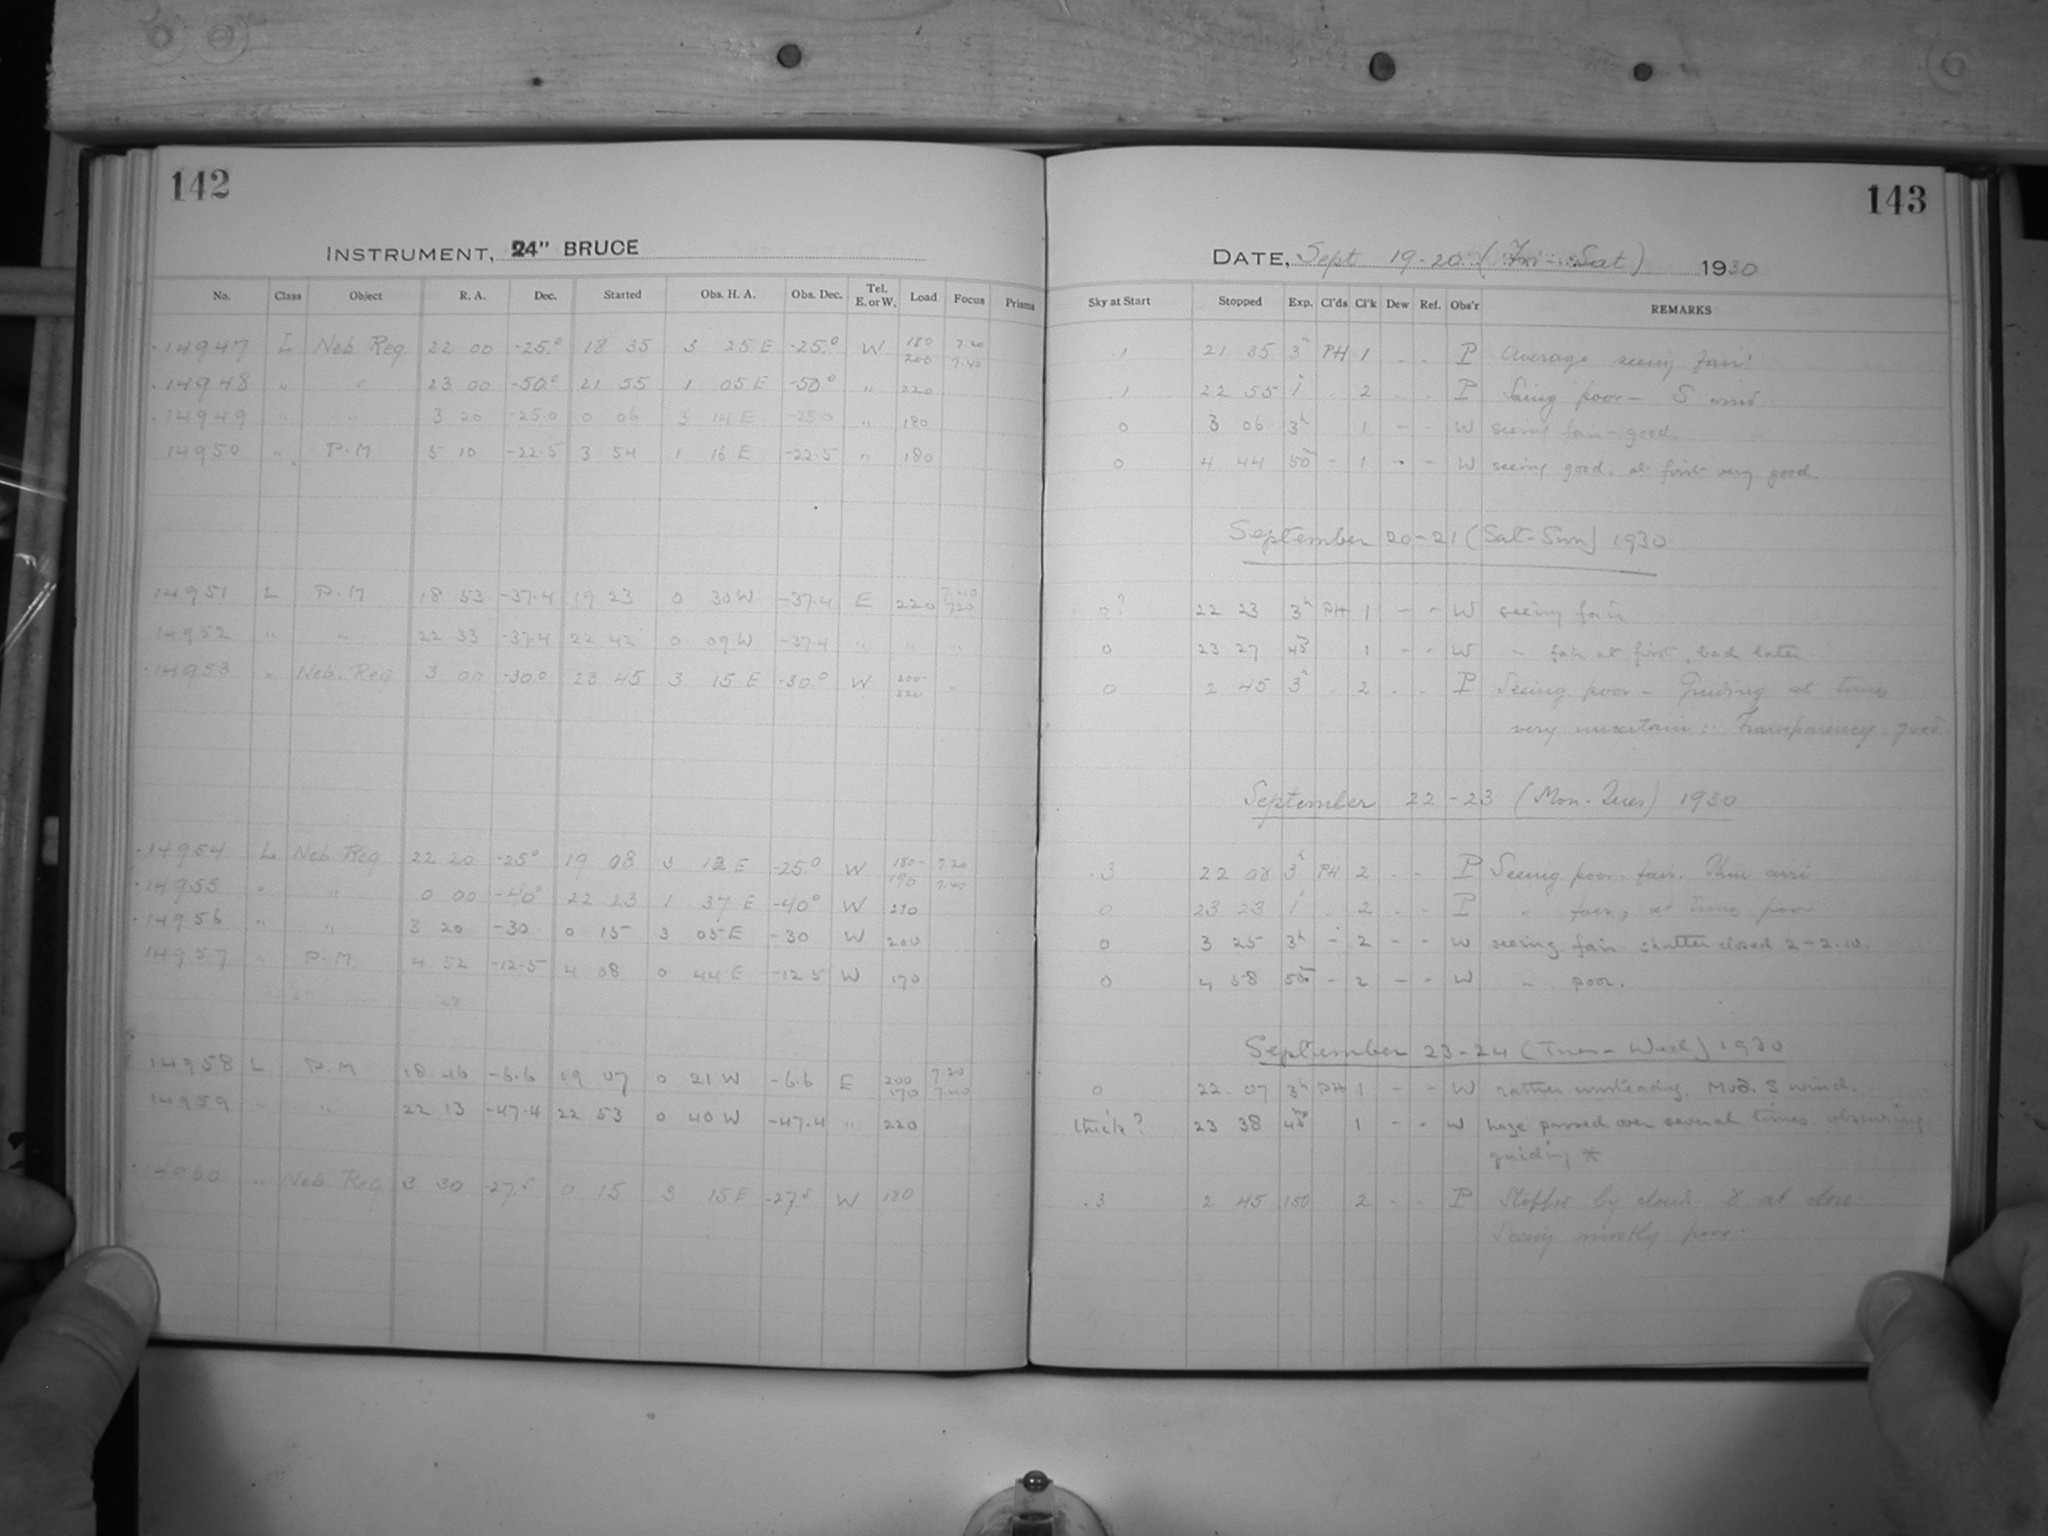 142
INSTRUMENT, 24" BRUCE
No. Class Object R. A. Dec. Started Obs. H. A. Obs. Dec. Tel. E. or W. Load Focus Prisms
14947 L Neb Reg 22 00 -25.° 18 35 3 25 E -25.° W 180 200 7.20 7.40
14948 " " 23 00 -50.° 21 55 1 05 E -50° " 220
14949 " " 3 20 -25.0 0 06 3 14 E -25.0 " 180
14950 " P.M 5 10 -22.5 3 54 1 16 E -22.5 " 180
14951 L P.M 18 53 -37.4 19 23 0 30 W -37.4 E 220 7.40 7.20
14952 " " 22 33 -37.4 22 42 0 09 W -37.4 " " "
14953 " Neb. Reg 3 00 -30.° 23 45 3 15 E -30.° W 200- 220 "
14954 L Neb Reg 22 20 -25° 19 08 3 12 E -25.° W 180- 190 7.20 7.40
14955 " " 0 00 -40° 22 23 1 37 E -40° W 210
14956 " " 3 20 -30 0 15 3 05 E -30 W 200
14957 " P.M. 4 52 -12.5 4 08 0 44 E -12.5 W 170
14958 L P.M 18 46 -6.6 19 07 0 21 W -6.6 E 200 170 7.20 7.40
14959 " " 22 13 -47.4 22 53 0 40 W -47.4 " 220
14960 " Neb. Reg 3 30 -27.5 0 15 3 15 E -27.5 W 180
143
DATE, Sept 19-20 (Fri - Sat) 1930
Sky at Start Stopped Exp. Cl'ds Cl'k Dew Ref. Obs'r REMARKS
.1 21 35 3h PH 1 - - P Average seeing fair
.1 22 55 1h 2 - - P Seeing poor - S wind
0 3 06 3h 1 - - W seeing fair - good
0 4 44 50m - 1 - - W seeing good. at first very good.
September 20-21 (Sat-Sun) 1930
0? 22 23 3h PH 1 - - W seeing fair
0 23 27 45m 1 - - W " fair at first, bad later.
0 2 45 3h 2 - - P Seeing poor - Guiding at times
very uncertain: Transparency good
September 22-23 (Mon-Tues) 1930
.3 22 08 3h PH 2 - - P Seeing poor-fair. Thin cirri
0 23 23 1h 2 - - P " fair, at times poor
0 3 25 3h - 2 - - W seeing fair shutter closed 2-2.10.
0 4 58 50m - 2 - - W " poor.
September 23-24 (Tues-Wed) 1930
0 22 07 3h PH 1 - - W rather unsteady. Mod. S wind.
thick? 23 38 45m 1 - - W haze passed over several times obscuring
guiding *
.3 2 45 150 2 - - P Stopped by clouds at close.
Seeing mostly poor.